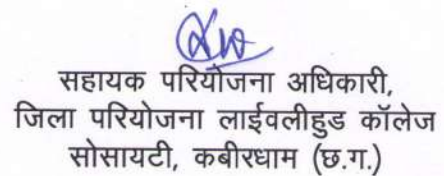 सहायक परियोजना अधिकारी,
जिला परियोजना लाईवलीहुड कॉलेज
सोसायटी, कबीरधाम (छ.ग.)